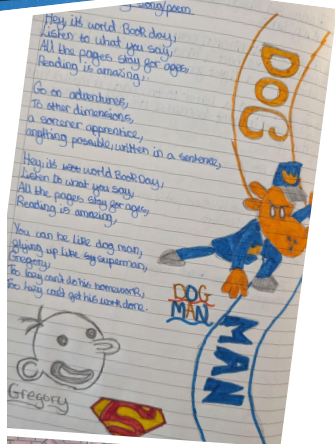 song/poem
Hey it's world Book day,
Listen to what you say,
All the pages stay for ages,
Reading is amazing,
Go on adventures,
To other dimensions,
a sorcerer apprentice,
anything possible, written in a sentence,
Hey it's world Book Day,
Listen to what you say,
All the pages stay for ages,
Reading is amazing,
You can be like dog man,
flying up like superman,
Gregory,
Too lazy can't do his homework,
Too lazy can't get his work done.
DOG
MAN
DOG
MAN
Gregory
S